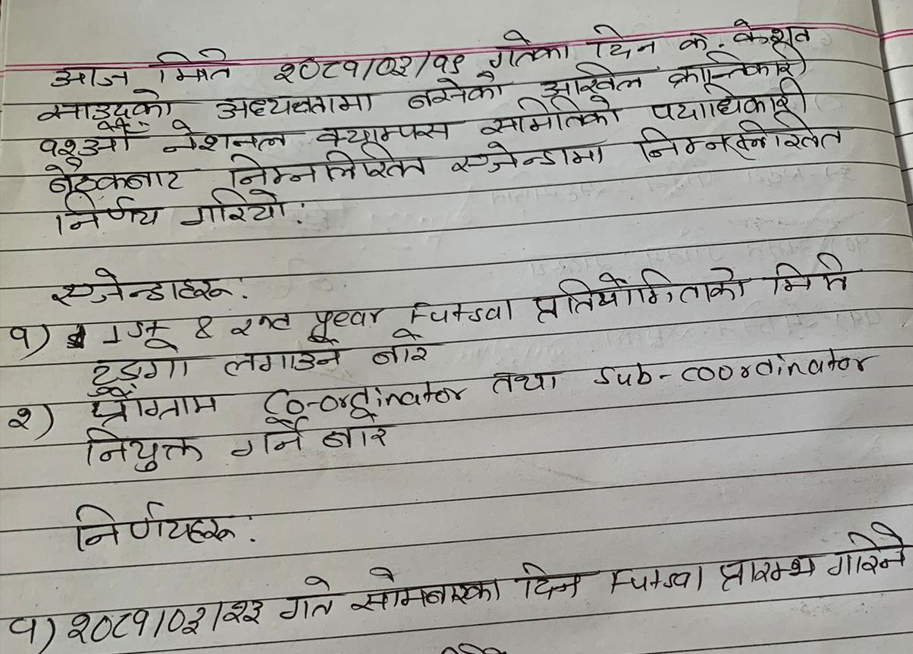 आज मिति २०८१/०३/१९ गतेका दिन क. केशव
साउदको अध्यक्षतामा बसेको अखिल क्रान्तिकारी
१२औँ नेशनल क्याम्पस समितिको पदाधिकारी
बैठकबाट निम्नलिखित एजेन्डामा निम्नलिखित
निर्णय गरियो:
एजेन्डाहरू:
१) 1st & 2nd year Futsal प्रतियोगिताको मिति
टुङ्गो लगाउने बारे
२) प्रोग्राम Co-ordinator तथा sub-coordinator
नियुक्त गर्ने बारे
निर्णयहरू:
१) २०८१/०३/२३ गते सोमबारका दिन Futsal प्रारम्भ गरिने